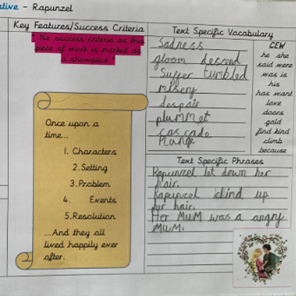 ative - Rapunzel
Key Features/Success Criteria
" No success criteria as this
piece of work is marked as
a showpiece. "
Once upon a
time...
1. Characters
2. Setting
3. Problem
4. Events
5. Resolution
...And they all
lived happily ever
after.
Text Specific Vocabulary
Sadness
gloom descend
Suffer tumbled
misery
despair
plummet
cascade
Text Specific Phrases
Rapunzel let down her
hair.
Rapunzel climd up
her hair.
Her MuM was a angry
MuM.
CEW
he she
said were
was is
his
has want
love
doors
gold
find kind
climb
because